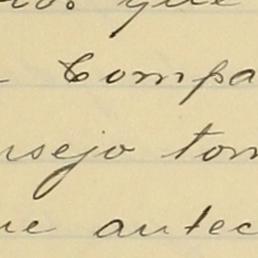 que
Compa
nsejo tom
ue antec